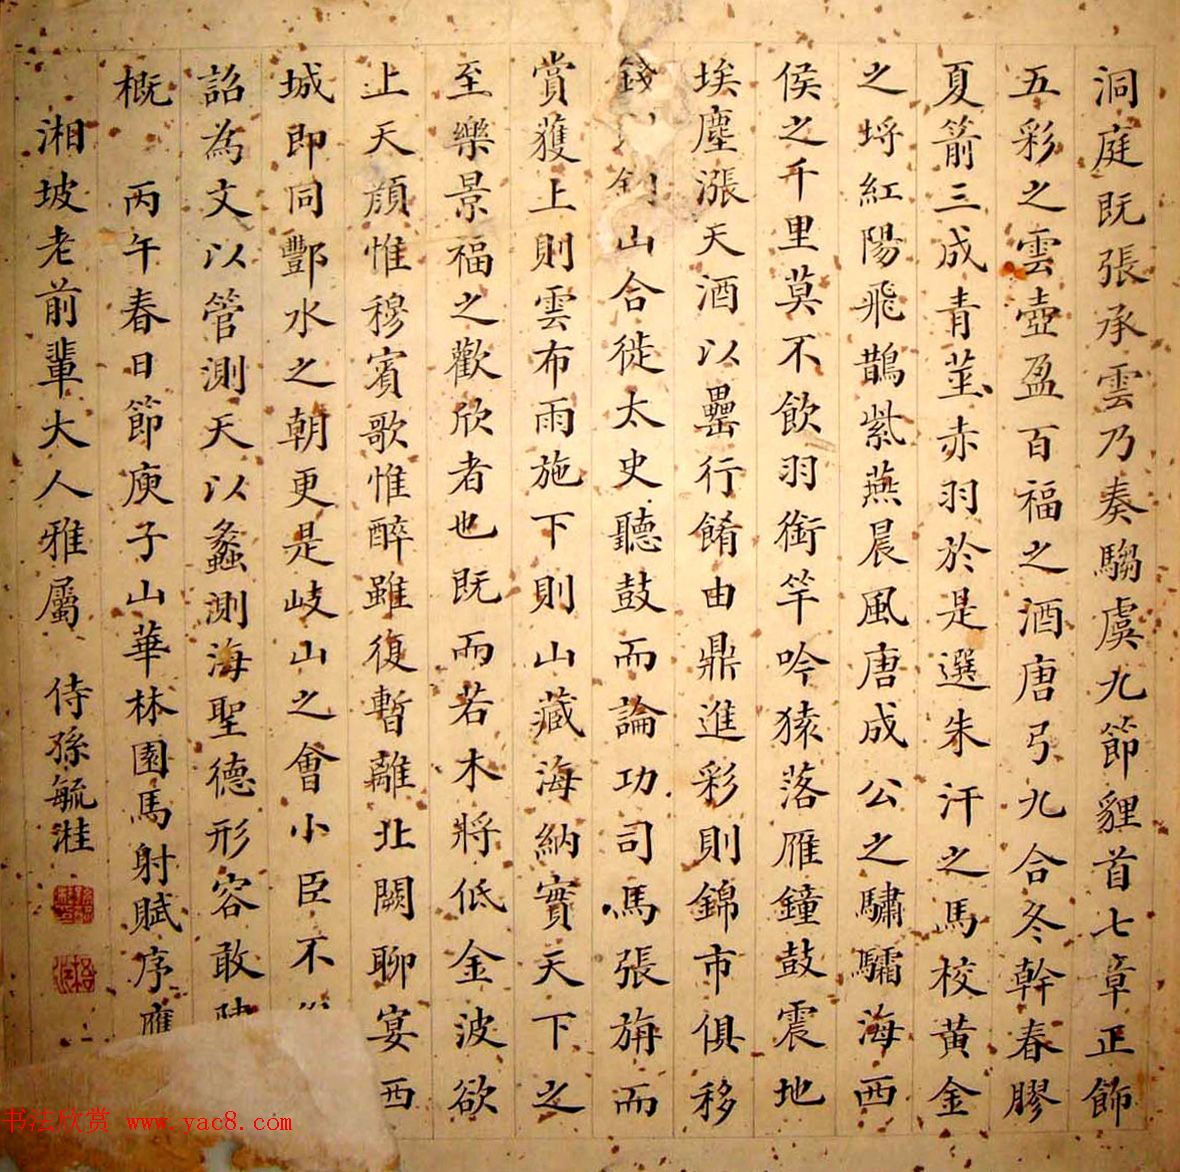 洞庭既張承雲乃奏騶虞九節貍首七章正飾
五彩之雲壺盈百福之酒唐弓九合冬幹春膠
夏箭三成青莖赤羽於是選朱汗之馬校黃金
之埒紅陽飛鵲紫燕晨風唐成公之驌驦海西
侯之千里莫不飲羽銜竿吟猿落雁鐘鼓震地
埃塵漲天酒以罍行餚由鼎進彩則錦市俱移
錢山合徙太史聽鼓而論功司馬張旃而
賞獲上則雲布雨施下則山藏海納實天下之
至樂景福之歡欣者也既而若木將低金波欲
上天顏惟穆賓歌惟醉雖復暫離北闕聊宴西
城即同酆水之朝更是岐山之會小臣不
詔為文以管測天以蠡測海聖德形容敢
概 丙午春日節庾子山華林園馬射賦序應
湘坡老前輩大人雅屬 侍孫毓溎
书法欣赏 www.yac8.com